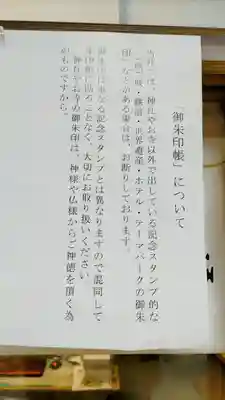 「御朱印帳」について
当社では、神社やお寺以外で出している記念スタンプ的な
「城・駅・鉄道・世界遺産・ホテル・テーマパークの御朱
印」などがある場合は、お断りしております。
御朱印は単なる記念スタンプとは異なりますので混同して
御朱印帳に貼ることなく、大切にお取り扱いください
神社やお寺の御朱印は、神様や仏様からご神徳を頂く為
のものですから。